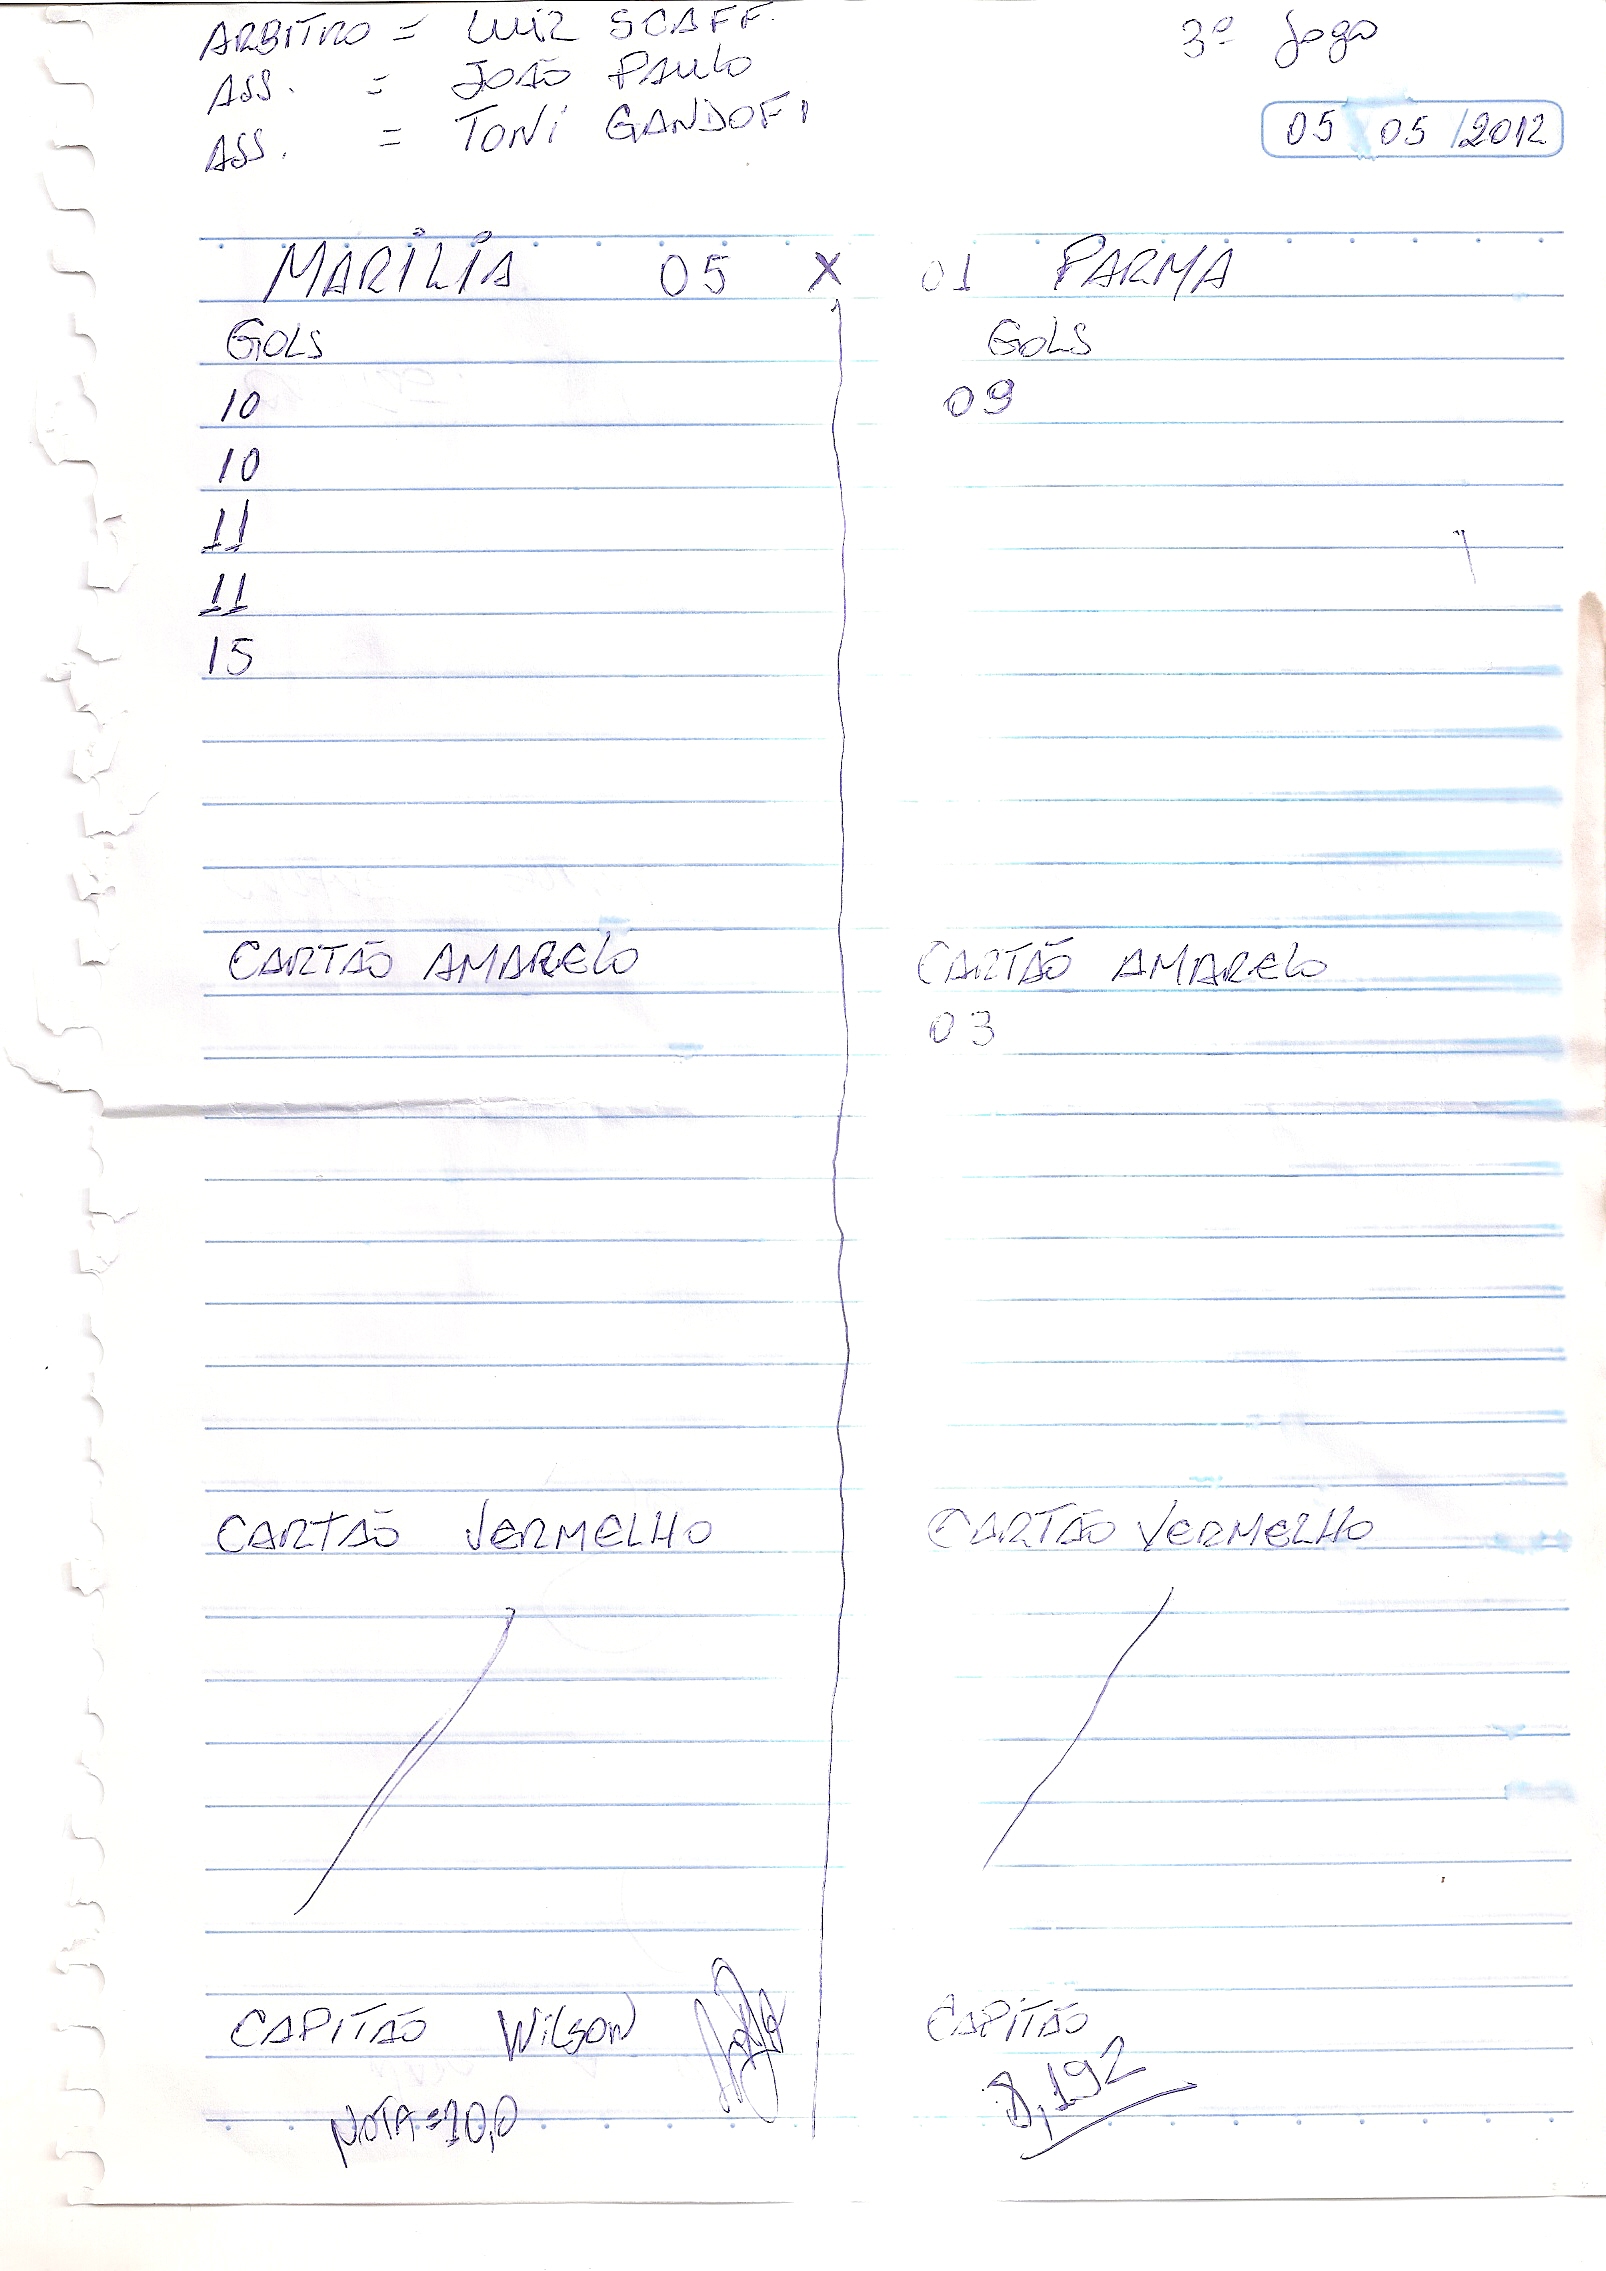 ARBITRO = LUIZ SCAFF.
ASS. = JOÃO PAULO
ASS. = TONI GANDOFI
3º Jogo
05 05 /2012
MARILIA 05 X 01 PARMA
GOLS
10
10
11
11
15
GOLS
09
CARTÃO AMARELO
CARTÃO AMARELO
03
CARTÃO VERMELHO
CARTÃO VERMELHO
CAPITÃO Wilson
NOTA = 10,0
CAPITÃO
8,192